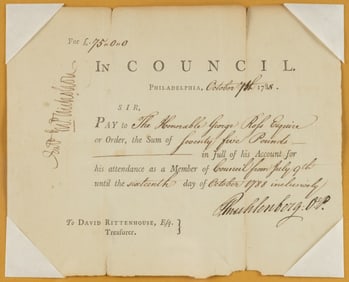 For £.75..0..0
IN COUNCIL.
PHILADELPHIA, October 7th 1788.
SIR,
PAY to The Honorable George Ross Esquire
or Order, the Sum of seventy five Pounds
in full of his Account for
his attendance as a Member of Council from July 9th
until the sixteenth day of October 1788 inclusively
Muhlenberg V.P.
To DAVID RITTENHOUSE, Esq.
Treasurer.
Nicholson